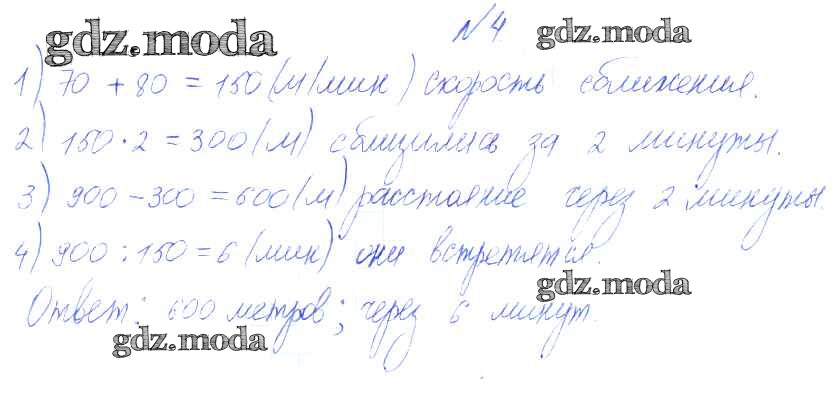 №4
gdz.moda
gdz.moda
1) 70 + 80 = 150 (м/мин) скорость сближения.
2) 150 · 2 = 300 (м) сблизились за 2 минуты.
3) 900 - 300 = 600 (м) расстояние через 2 минуты.
4) 900 : 150 = 6 (мин) они встретятся.
gdz.moda
Ответ: 600 метров; через 6 минут.
gdz.moda